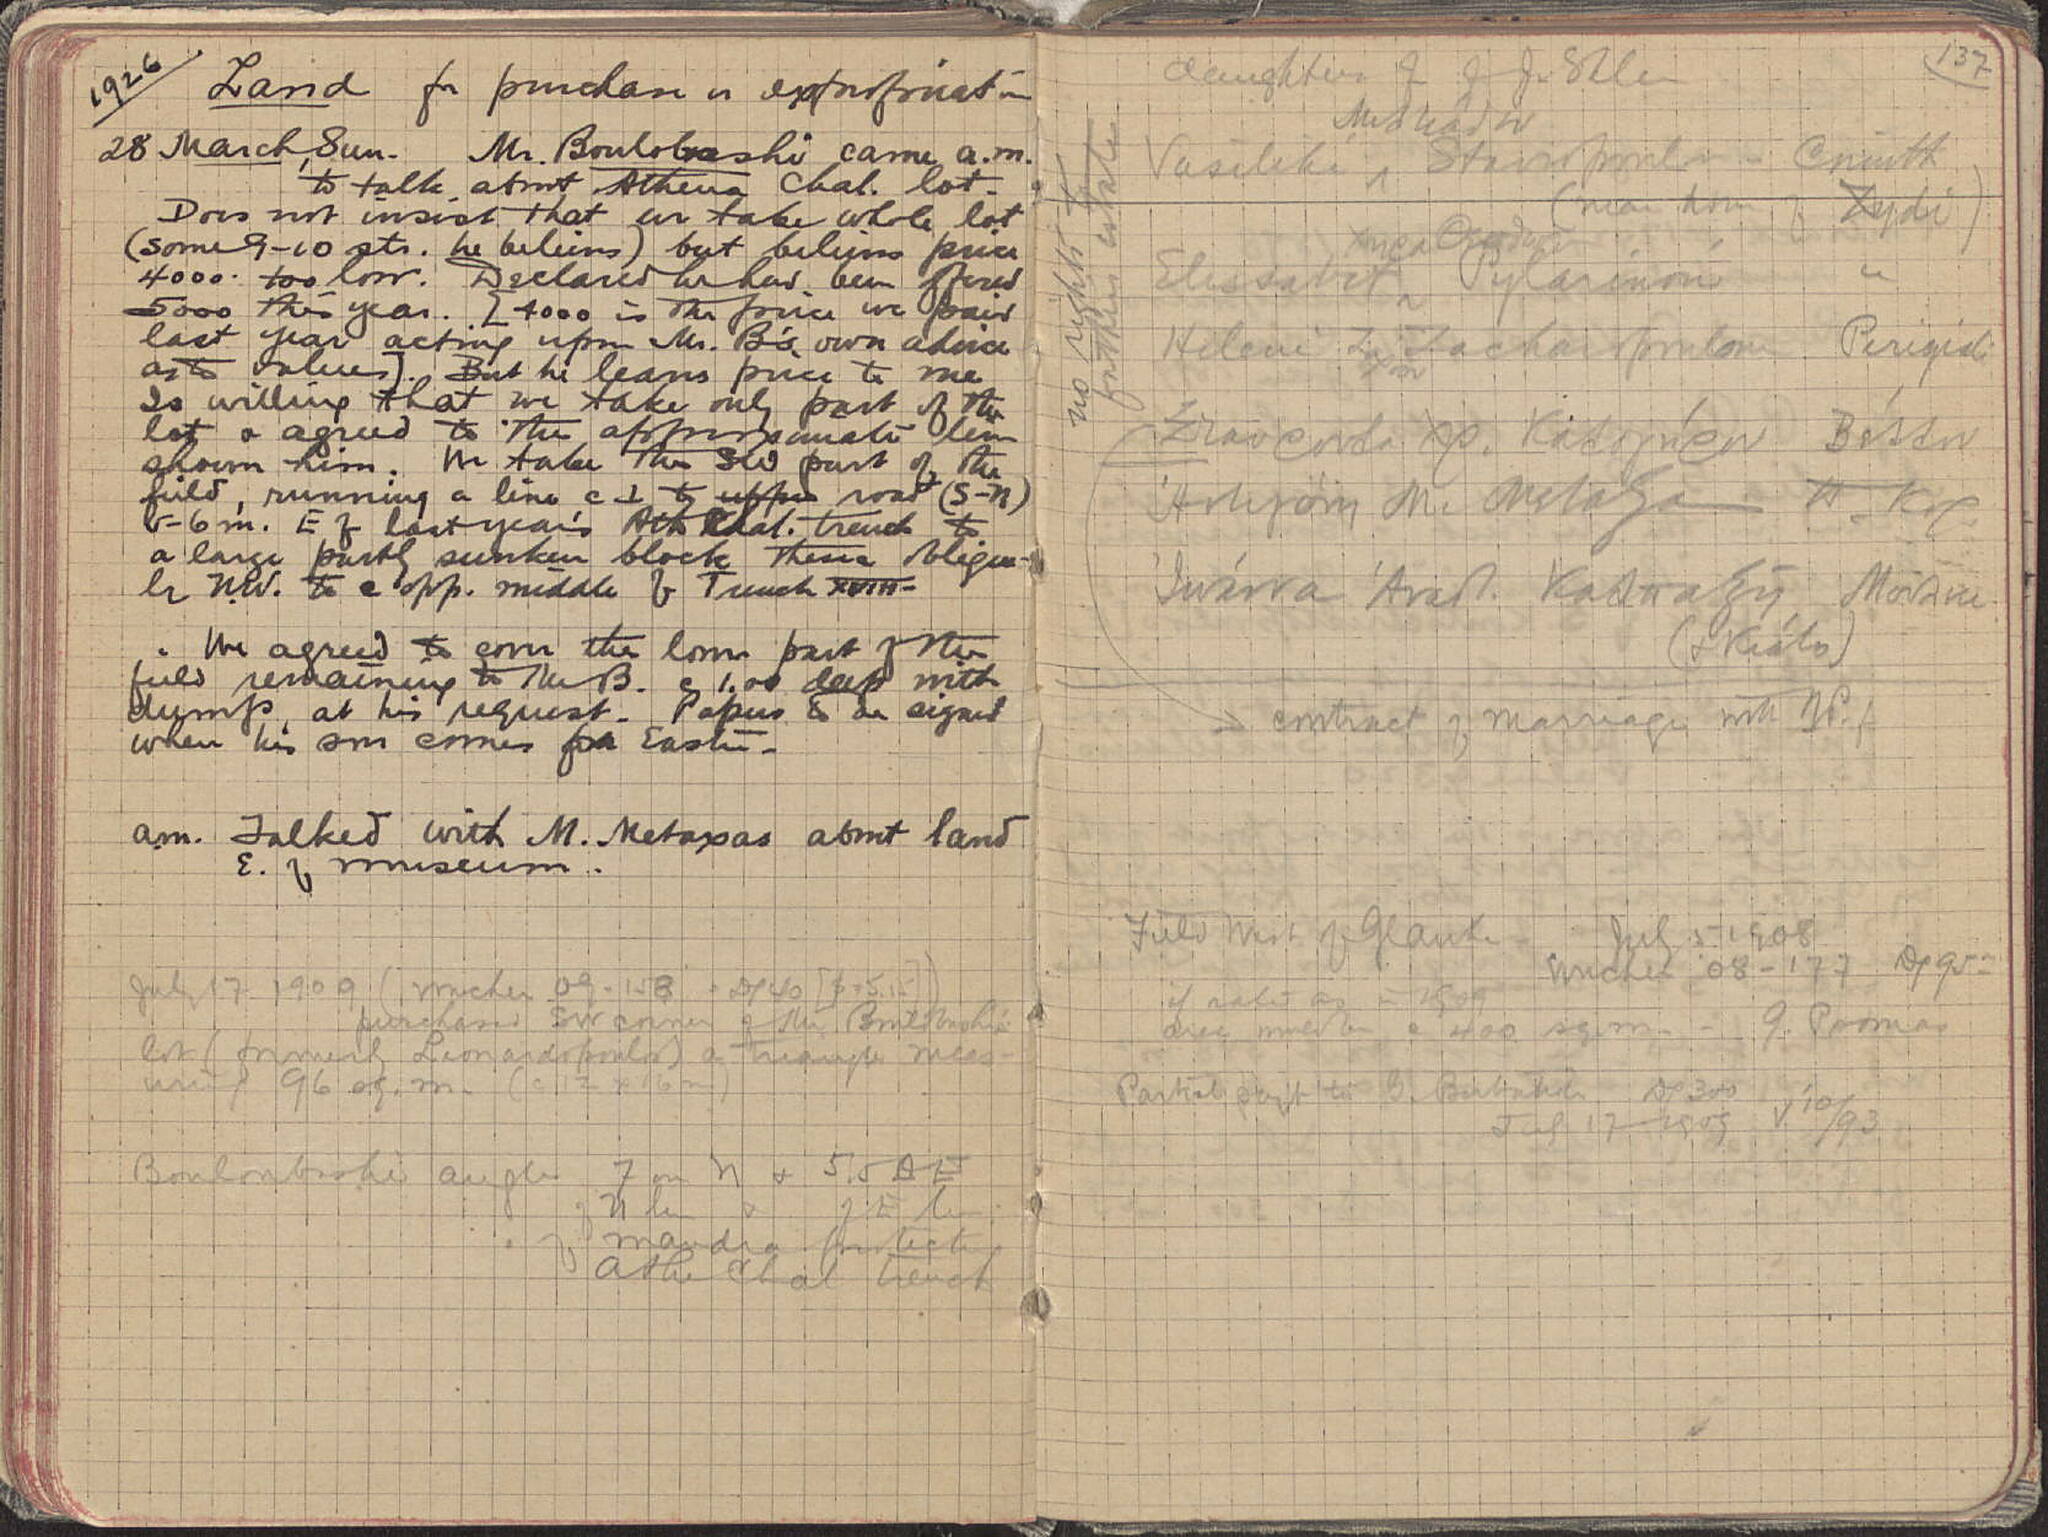 1926
Land for purchase or expropriation
28 March, Sun. Mr. Boulobashi came a.m.
to talk about Athena Chal. lot.
Does not insist that we take whole lot
(some 9-10 str. he believes) but believes price
4000. too low. Declared he had been offered
5000 this year. [4000 is the price we paid
last year acting upon Mr. B's own advice
as to values]. But he leaves price to me
Is willing that we take only part of the
lot & agreed to the approximate line
shown him. We take the SW part of the
field, running a line c ⊥ to upper road (S-N)
5-6 m. E of last year's Ath Chal. trench to
a large partly sunken block thence oblique-
ly N.W. to c opp. middle of Trench XVIII-
We agreed to cover the lower part of the
field remaining to Mr B. c 1.00 deep with
dumps, at his request. Papers to be signed
when his son comes for Easter.
a.m. Talked with M. Metaxas about land
E. of museum.
July 17 1909 (voucher 09-158 Dr 40 [$ 5.15])
purchased SW corner of the Boulobashi
lot (formerly Leonardopoulos) a triangle meas-
uring 96 sq. m. (c 12 x 16 m)
Bouloubashi angle 7 m N & 5.5 E
of N line & of E line
of mandra protecting
Athe Chal trench
137
daughters of
no rights to
Vasiliki Stavropoulou - Corinth
(near home of Zydi)
Elissavet Pylarinou "
Heleni Zachariopoulou Perigiali
M. Μεταξα
(& Kiato)
contract of marriage with
Field West of Glauke July 5 1908
voucher 08-177 Dr 95-
if rate as in 1909
area would be c 400 sq. m. - G. Roomas
Partial paym't to G. Dr 300
July 17 1909 V 10/93